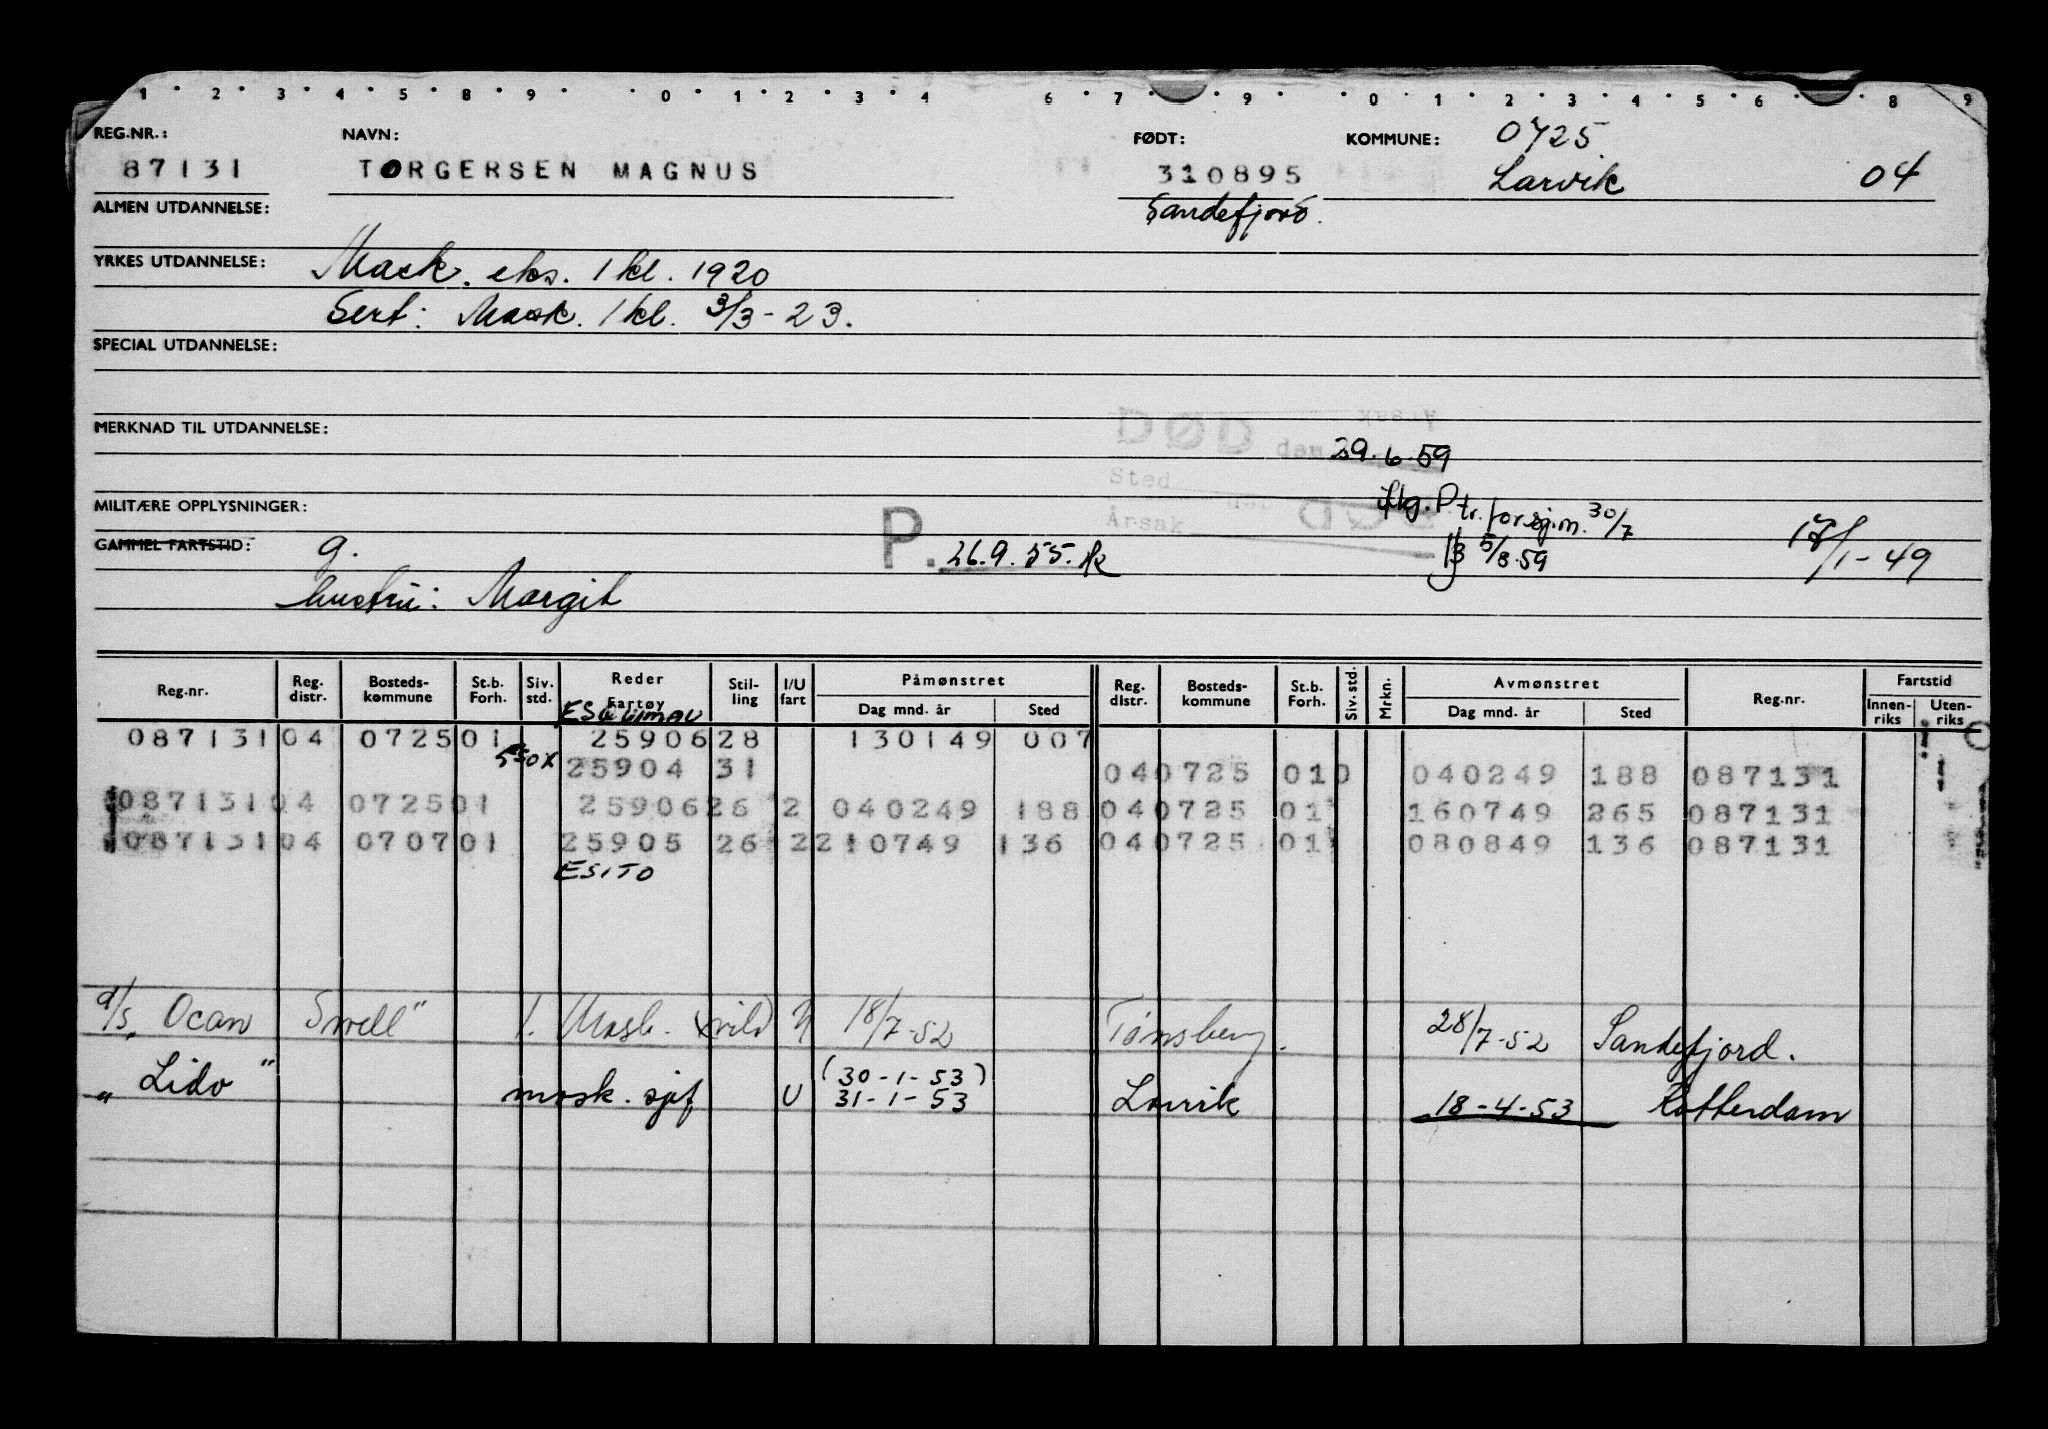 1 2 3 4 5 8 9 0 1 2 3 4 6 7 9 0 1 2 3 4 5 6 8 9
REG.NR.: NAVN: FØDT: KOMMUNE: 0725
87131 TORGERSEN MAGNUS 310895 Larvik 04
ALMEN UTDANNELSE: Sandefjord.
YRKES UTDANNELSE: Mask. eks. 1 kl. 1920
Sert: Mask. 1 kl. 3/3-23.
SPECIAL UTDANNELSE:
MERKNAD TIL UTDANNELSE:
DØD den 29.6.59
Sted
MILITÆRE OPPLYSNINGER: flg. Ptr. for sj.m. 30/7
Årsak
GAMMEL FARTSTID: g. P. 26.9.55. 5/8.59 /1-49
hustru: Margit
Reg.nr. Reg. distr. Bosteds-kommune St.b. Forh. Siv. std. Reder Fartøy Stil-ling I/U fart Påmønstret Dag mnd. år Sted Reg. distr. Bosteds-kommune St.b. Forh. Siv. std. Mrkn. Avmønstret Dag mnd. år Sted Reg.nr. Fartstid Innen-riks Uten-riks
087131 04 0725 01 25906 28 130149 007
25904 31 04 0725 010 040249 188 087131
087131 04 0725 01 25906 26 2 040249 188 04 0725 01 160749 265 087131
087131 04 0707 01 25905 26 2 210749 136 04 0725 01 080849 136 087131
ESITO
Ocan Swell" 1. Mask. 18/7-52 Tønsberg. 28/7-52 Sandefjord.
(30-1-53)
" Lido " mask. sjef U 31-1-53 Larvik 18-4-53 Rotterdam